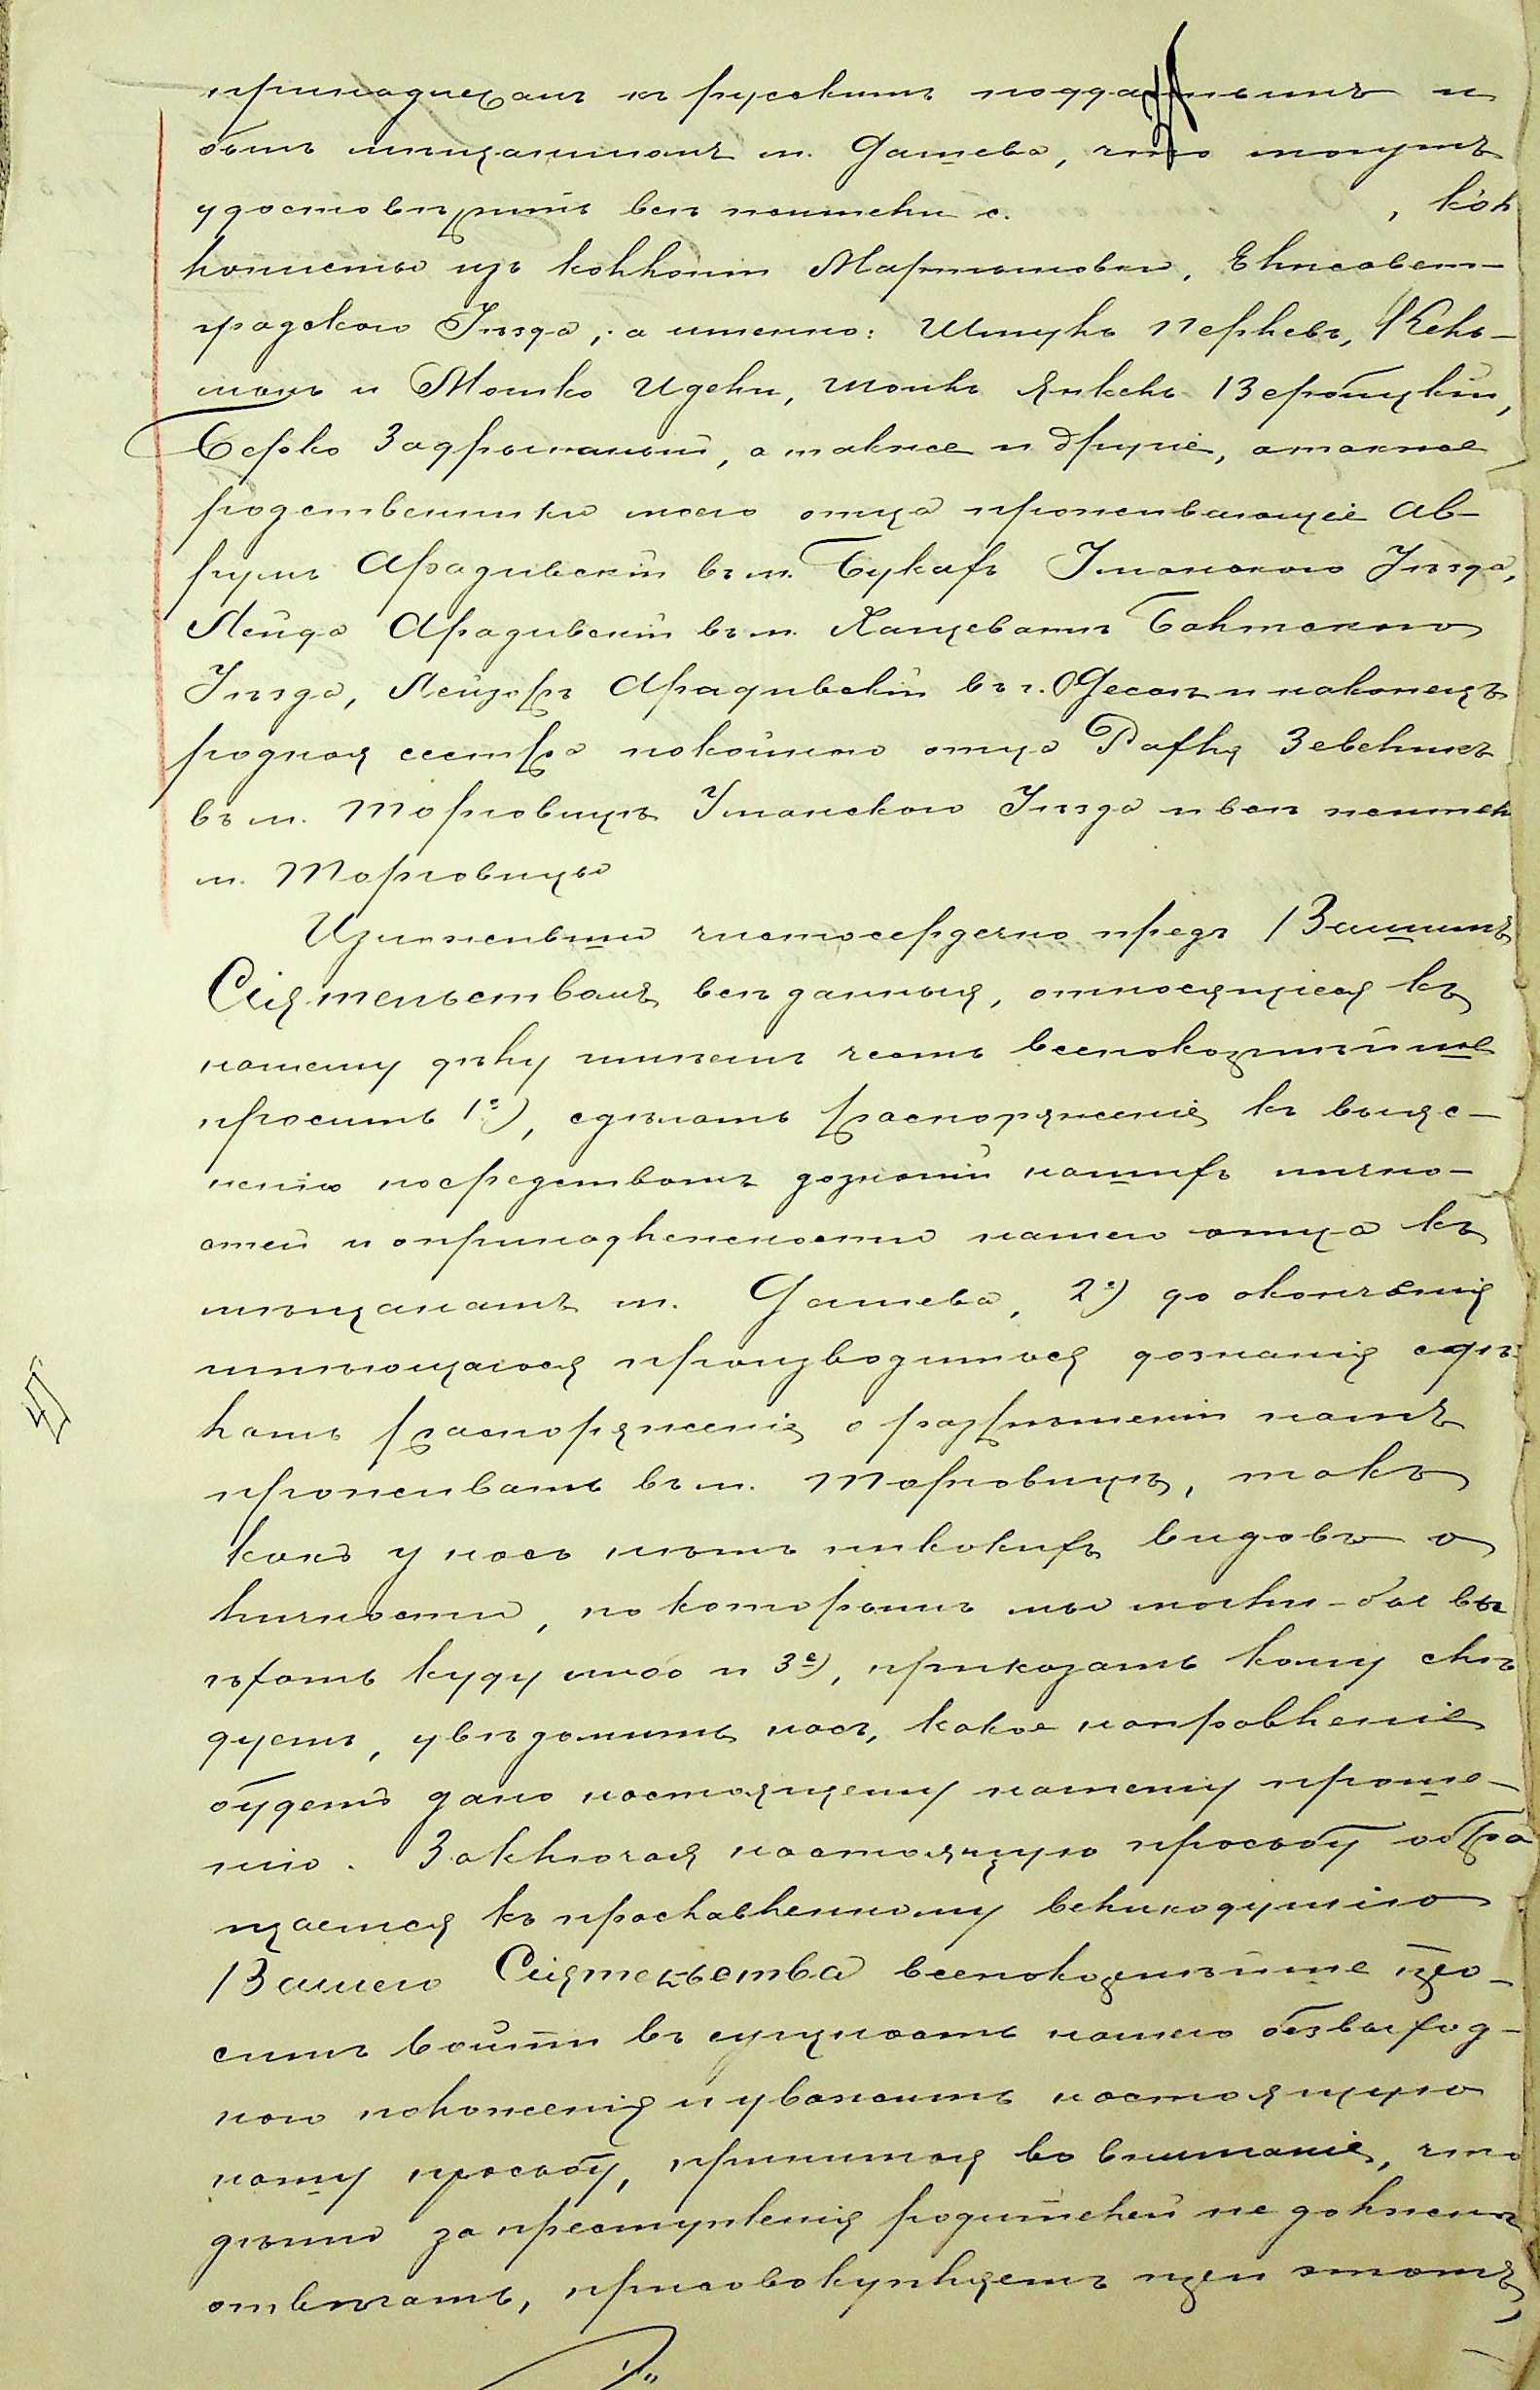 принадлежалъ къ русскимъ подданнымъ и
былъ мѣщаниномъ м. Дашева, что могутъ
удостовѣрить всѣ жители с. , кол
лонисты изъ коллоніи Мартыновки, Елисавет-
градскаго Уѣзда, а именно: Шмуль Перлевъ, Кель-
манъ и Мошко Идели, Янкель
Берко, а также и другіе, а также
родственники моего отца проживающіе Ав-
румъ Арадивскій въ м. Букахъ Уманскаго Уѣзда,
Лейда Арадивскій въ м. Ханщеватѣ Балтскаго
Уѣзда, Лейзеръ Арадивскій въ г. Одессѣ и наконецъ
родная сестра покойнаго отца Рафля Зевеликъ
въ м. Торговицѣ Уманскаго Уѣзда и всѣ жител
м. Торговицы
Изъяснивши чистосердечно предъ Вашимъ
Сіятельствомъ всѣ данныя, относящіеся къ
нашему дѣлу имѣемъ честь всепокорнѣйше
просить 1е), сдѣлать распоряженіе къ выяс-
ненію посредствомъ дознаній нашихъ лично-
стей и о принадлежности нашего отца къ
мѣщанамъ м. Дашева, 2е) до окончанія
имѣющагося производиться дознанія сдѣ-
лать распоряженіе о разрѣшеніи намъ
проживать въ м. Торговицѣ, такъ
какъ у насъ нѣтъ никакихъ видовъ о
личности, по которымъ мы могли-бы вы
ѣхать куду либо и 3е), приказать кому слѣ
дуетъ, увѣдомить насъ, какое направленіе
будетъ дано настоящему нашему проше-
нію. Заключая настоящую просьбу обра
щаемся къ прославленному великодушію
Вашего Сіятельства всепокорнѣйше про-
симъ войти въ сущность нашего безвыход-
наго положенія и уважить настоящую
нашу просьбу, принимая во вниманіе, что
дѣти за преступленія родителей не должны
отвѣчать, присовокупляемъ при этомъ,